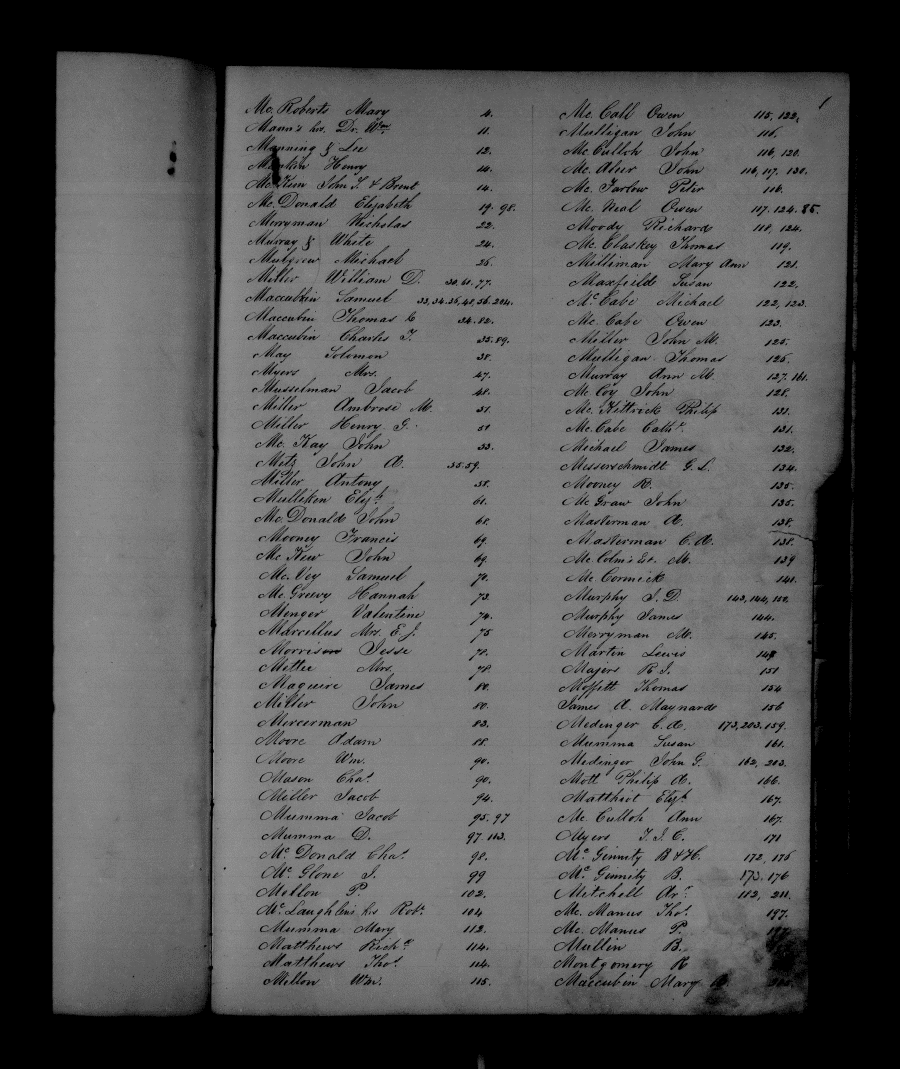 1
Mc. Roberts Mary 4.
Mann's hrs. Dr. Wm. 11.
Manning & Lee 12.
Mankin Henry 14.
Mc. Kim John S. & Brent 14.
Mc. Donald Elizabeth 19. 98.
Merryman Nicholas 22.
Murray & White 24.
Mulgrew Michael 26.
Miller William D. 30. 61. 77.
Maccubbin Samuel
Maccubin Thomas C 34. 82.
Maccubin Charles T. 35. 89.
May Solomon 38.
Myers Mrs. 47.
Musselman Jacob 48.
Miller Ambrose M. 51.
Miller Henry G. 51
Mc. Kay John 53.
Metz John A. 55. 59.
Miller Antony 58.
Mulliken Elizh. 61.
Mc. Donald John 68.
Mooney Francis 69.
Mc Kew John 69.
Mc. Vey Samuel 70.
Mc. Greevy Hannah 73
Menger Valentine 74.
Marcellus Mrs. E. J. 75
Morrison Jesse 78.
Mettee Mrs. 78.
Maguire James 80.
Miller John 80.
Mercerman 83.
Moore Adam 88.
Moore Wm. 90.
Mason Chas. 90.
Miller Jacob 94.
Mumma Jacob 95. 97
Mumma D. 97. 163.
Mc. Donald Chas. 98.
Mc. Glone J. 99
Mellon P. 102.
Mc. Laughlin's hrs Robt. 104
Mumma Mary 112.
Matthews Richd. 114.
Matthews Thos. 114.
Mellon Wm. 115.
Mc. Call Owen 115, 122,
Mulligan John 116.
Mc. Culloh John 116, 120.
Mc. Aleer John 116, 117. 130.
Mc. Farlow Peter 116.
Mc. Neal Owen 117. 124. 85.
Moody Richard 118, 124.
Mc. Claskey Thomas 119.
Milliman Mary Ann 121.
Maxfield Susan 122.
Mc. Cabe Michael 122, 123.
Mc. Cabe Owen 123.
Miller John M. 125.
Mulligan Thomas 126.
Murray Ann M. 127. 161.
Mc Coy John 128.
Mc. Kittrick Philip 131.
Mc. Cabe Cathe. 131.
Michael James 132.
Messerschmidt G. L. 134.
Mooney R. 135.
Mc Graw John 135.
Masterman A. 138.
Masterman C. A. 138.
Mc. Colm's Est. M. 139
Mc Cormick 141.
Murphy J. D.
Murphy James 144.
Merryman M. 145.
Martin Lewis
Majers R. J. 151
Moffitt Thomas 154
James A. Maynard 156
Medinger C. A. 173, 203. 159.
Mumma Susan 161.
Medinger John G. 162, 203.
Mott Philip A. 166.
Matthiot Elizh. 167.
Mc Culloh Ann 167.
Myers T. J. C. 171
Mc. Ginnity B & H. 172, 176
Mc. Ginnity B. 173. 176
Mitchell Ar. 182, 211.
Mc. Manus Thos. 197.
Mc. Manus P.
Mullin B.
Montgomery R
Maccubin Mary